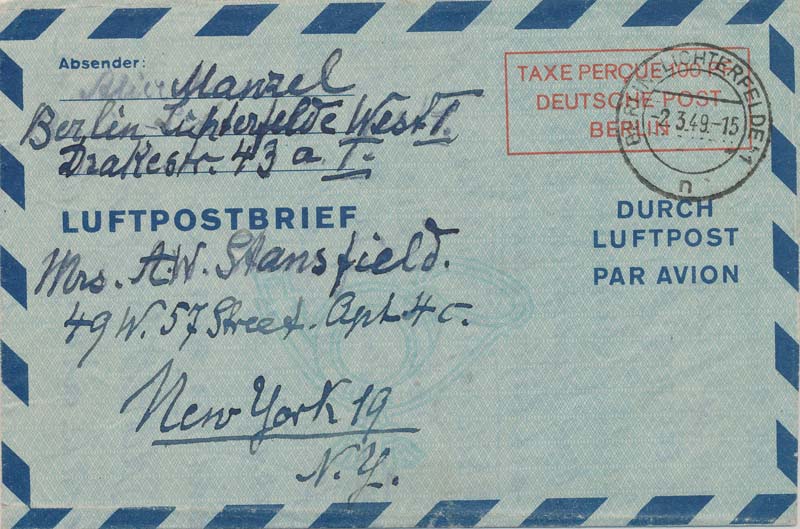 Absender:
Manzel
Berlin-Lichterfelde West I.
Drakestr. 43 a I.
TAXE PERÇUE 100 Pf
DEUTSCHE POST
BERLIN
BERLIN-LICHTERFELDE 1
-2.3.49.-15
n
LUFTPOSTBRIEF
DURCH
LUFTPOST
PAR AVION
Mrs. A.W. Stansfield.
49 W. 57 Street. Apt 4 c.
New York 19
N.Y.